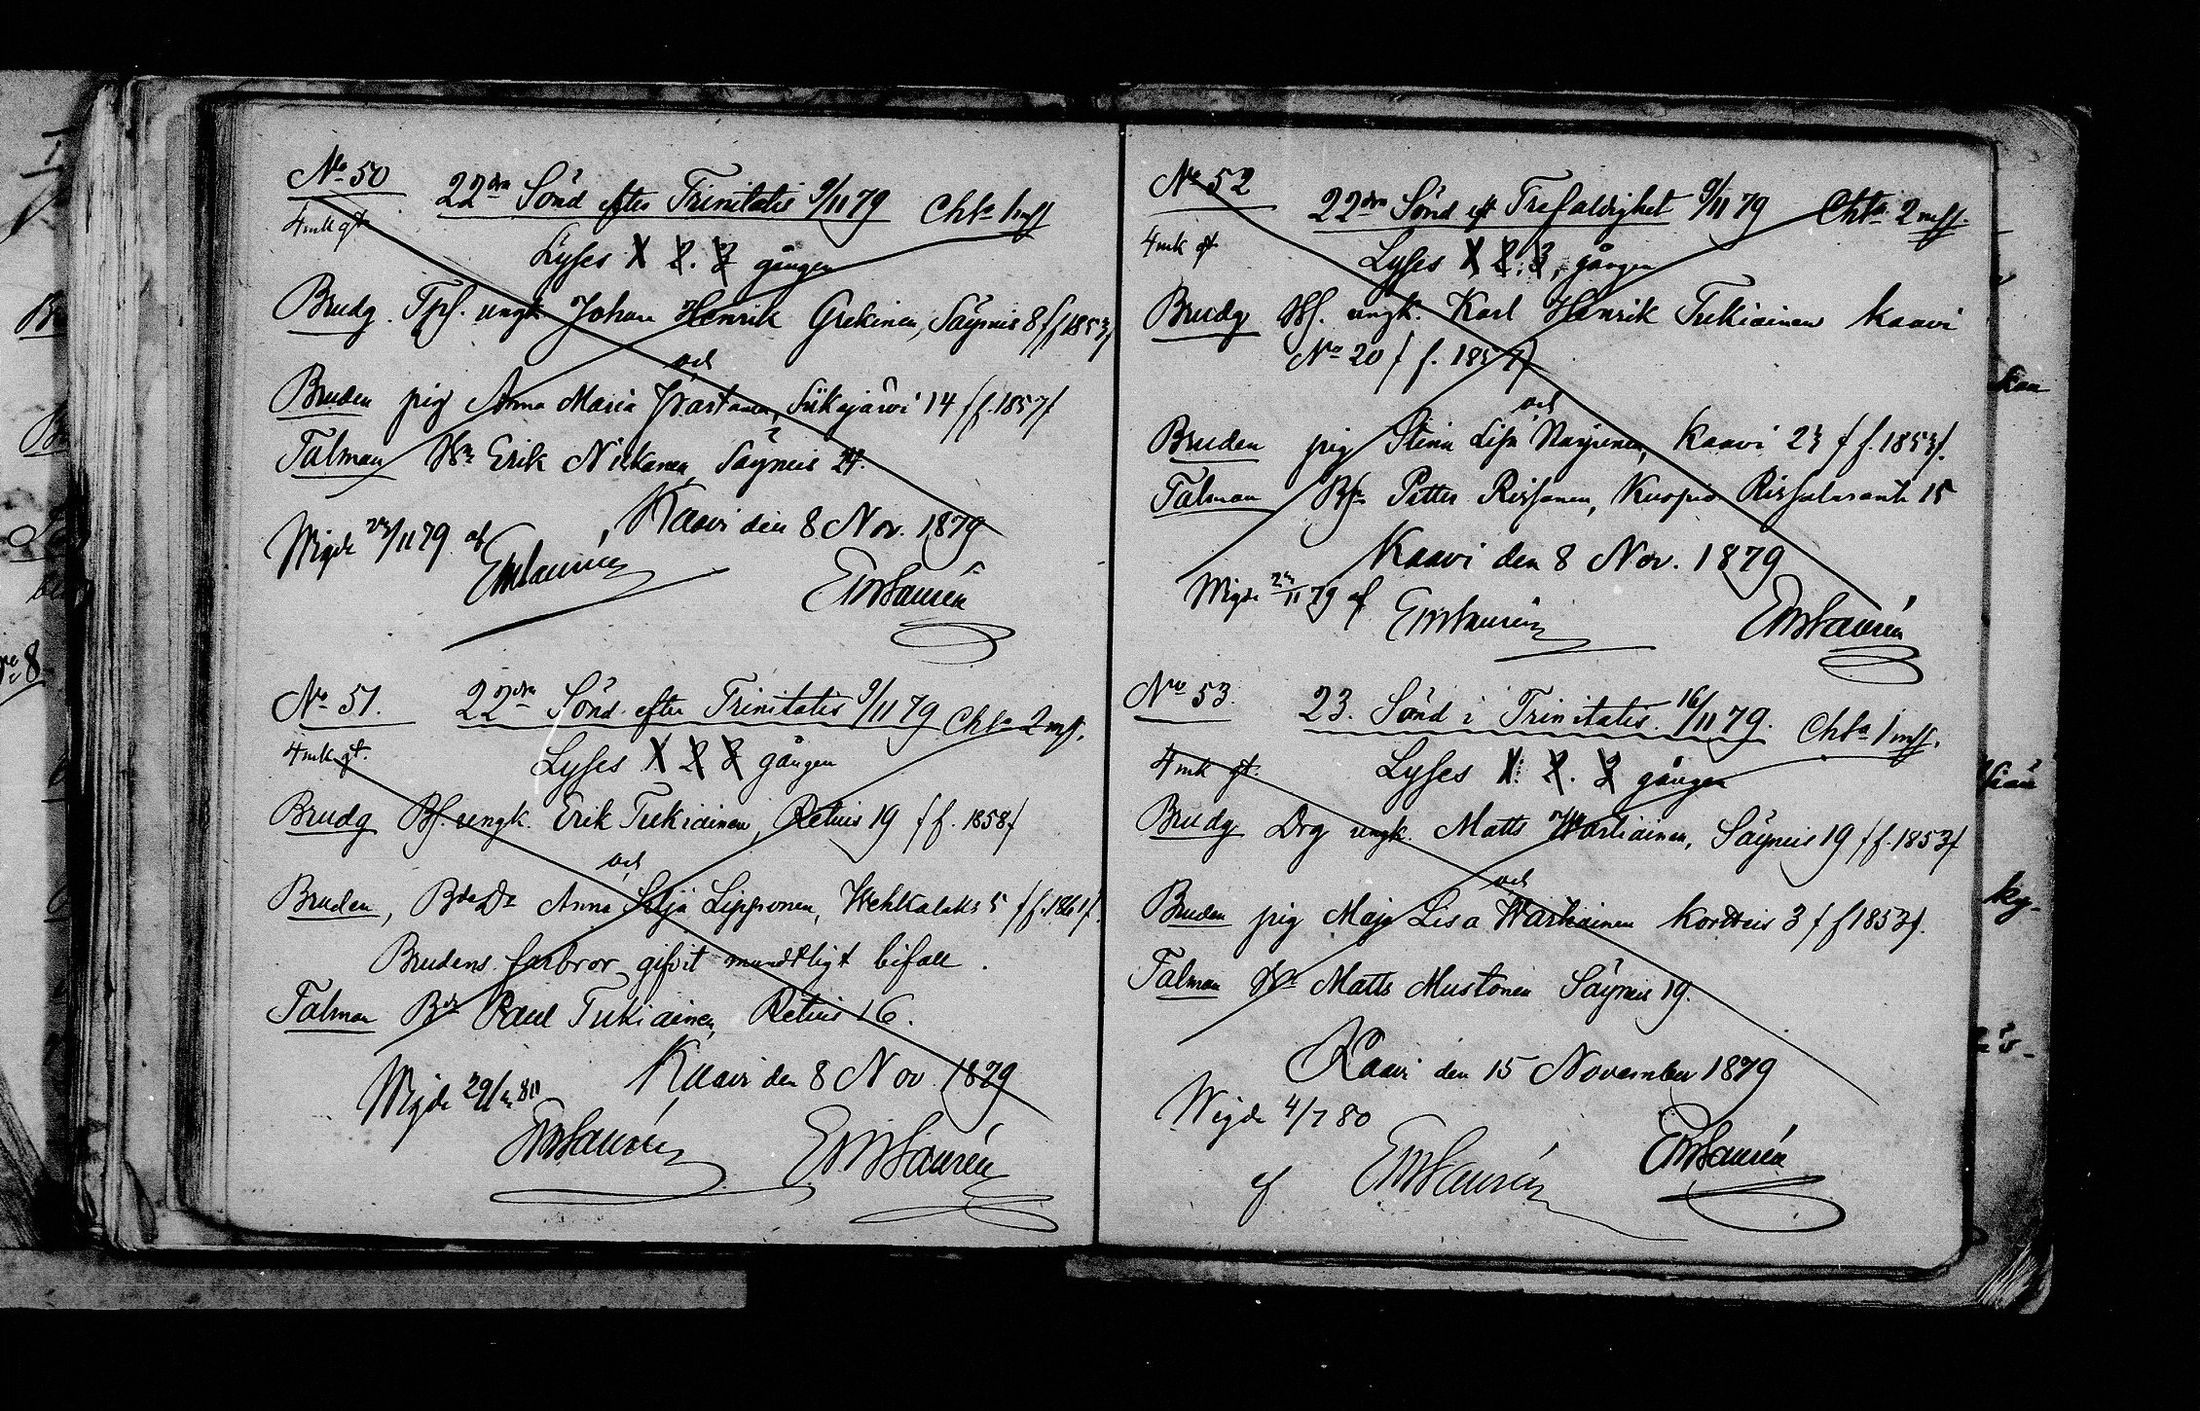 No 50
22dra Sönd efter Trinitatis 9/11 79 Chta 1 mk
4 mk gt
Lyses 1 2. 3 gången
Brudg. Tpf. ungk Johan Henrik Grekinen, Säyneis 8 / f 1853/
och
Bruden pig Anna Maria Wartanen, Siikajärvi 14 / f. 1857/
Talman Erik Niskanen Säyneis 24.
Kaavi den 8 Nov. 1879
Wigde 23/11 79 af
EWLaurén
EWLaurén
No 51.
22dra Sönd. efter Trinitatis 9/11 79 Chta 2 mk.
4 mk gt.
Lyses 1 2 3 gången
Brudg Bf. ungk. Erik Tukiainen, Retuis 19 / f. 1858/
och
Bruden, Anna Silja Lipponen, Wehkalaks 5 / f. 1861/.
Brudens farbror gifvit mundtligt bifall.
Talman Paul Tukiainen, Retuis 16.
Kaavi den 8 Nov. 1879
Wigde
EWLaurén
EWLaurén
No 52
22dra Sönd eft Trefaldighet 9/11 79 Chta 2 mk.
4 mk gt.
Lyses 1 2. 3, gången
Brudg ungk. Karl Henrik Tukiainen Kaavi
No 20 / f. 1857/
och
Bruden pig Stina Lisa Kaavi 23 / f. 1853/.
Talman Petter Rissanen, Kuopio Rissalaranta 15
Kaavi den 8 Nov. 1879
Wigde 23/11 79 af
EWLaurén
EWLaurén
No 53.
23. Sönd i Trinitatis. 16/11 79. Chta 1 mk.
4 mk gt.
Lyses 1. 2. 3 gången
Brudg Drg ungk. Matts Wartiainen, Säyneis 19 / f. 1853/
och
Bruden pig Maja Lisa Wartiainen Kortteis 3 / f 1853/.
Talman Matts Mustonen Säyneis 19.
Kaavi den 15 November 1879
Wigde 4/7 80
af
EWLaurén
EWLaurén